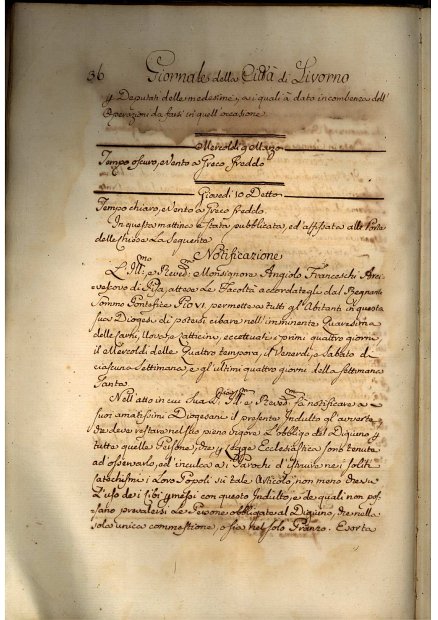 36 Giornale della Città di Livorno
p Deputati delle medesime, a i quali à data incombenza dell'
Operazioni da farsi in quell'occasione.
Mercoldi 9 Marzo
Tempo oscuro, e Vento a Greco freddo
Giovedi 10 Detto
Tempo chiaro, e Vento a Greco freddo.
In questa mattina è stata pubblicata, ed affissata alle Porte
delle Chiese la Seguente
Notificazione
L'Ill:mo e Rev:mo Monsignore Angiolo Franceschi Arci-
vescovo di Pisa, attese le Facoltà accordategli dal Regnante
Sommo Pontefice Pio VI. permette a tutti gl'Abitanti in questa
sua Diogesi di potersi cibare nell'imminente Quaresima
delle Carni, Uova, e Latticini, eccettuati i primi quattro giorni,
il Mercoldi delle Quattro tempora, il Venerdi, e Sabato di
ciascuna Settimana, e gl'ultimi quattro giorni della Settimana
Santa.
Nell'atto in cui Sua Sig:ria Ill:ma e Rev:ma fà notificare a
suoi amatissimi Diogesani il presente Indulto gl'avverte,
che deve restare nel suo pieno vigore l'obbligo del Digiuno p
tutte quelle Persone, che p Legge Ecclesiastica sono tenute
ad osservarlo, ed inculca a i Parochi d'istruire ne i soliti
Catechismi i Loro Popoli su tale Articolo, non meno che su
L'uso de i Cibi pmessi con questo Indulto, e de quali non pos-
sano prevalersi le Persone obbligate al Digiuno, che nella
sola unica commestione, o sia nel solo Pranzo. Esorta